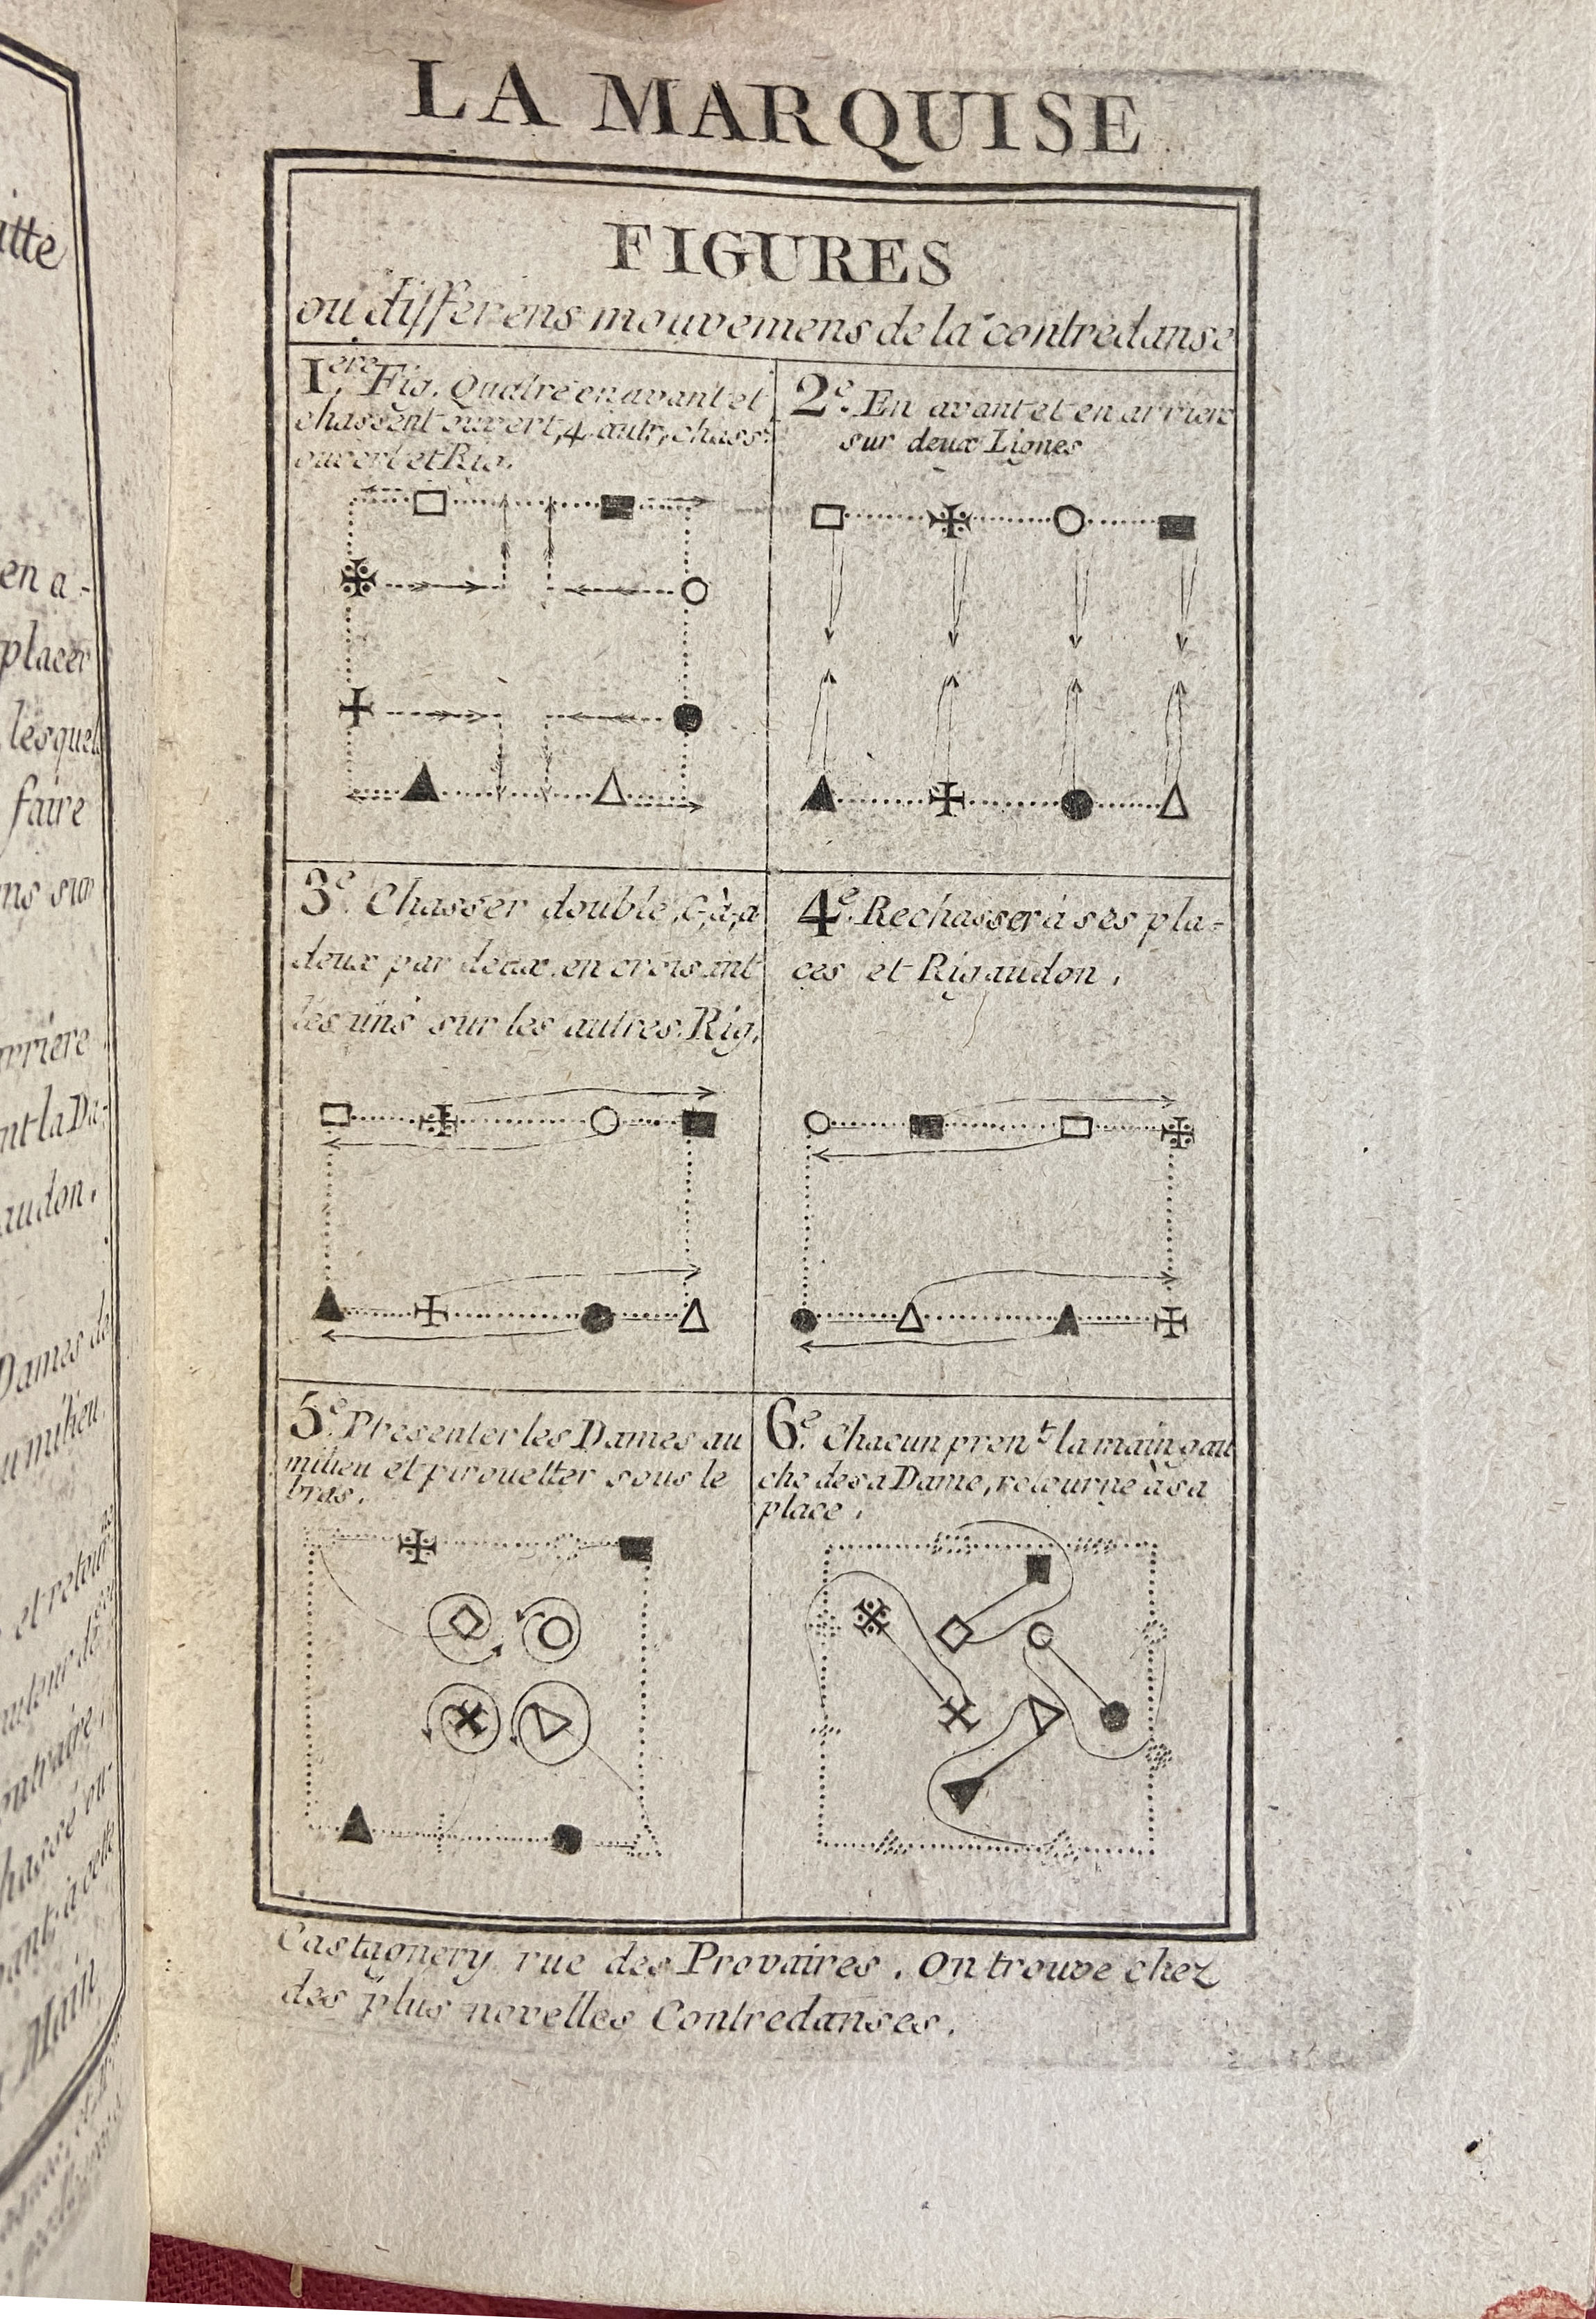 LA MARQUISE
FIGURES
ou differens mouvemens de la contredanse
1ere. Fig. Quatre en avant et
chassent ouvert, 4 autr, chass.
ouvert et Rig.
2e. En avant et en arriere
sur deux Lignes
3e. Chasser double, c, à, a
deux par deux en croisant
les uns sur les autres. Rig.
4e. Rechasser à ses pla=
ces et Rigaudon.
5e. Presenter les Dames au
milieu et pirouetter sous le
bras.
6e. Chacun pren.t la main gau
che de sa Dame, retourne à sa
place.
Castagnery rue des Provaires. On trouve chez
des plus novelles Contredanses.
itte
en a-
placer
lesquel
faire
ns sur
arriere
nt la Da-
audon.
Dames de
u milieu.
et retour
ontraire,
Main